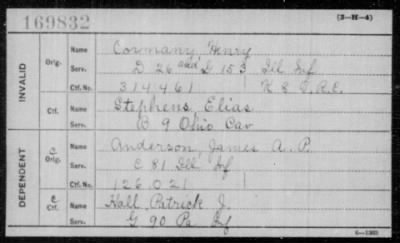 169832
(3-H-4)
INVALID
Orig. Name Cormany, Henry
Serv. D 26 and G 153 Ill Inf
Ctf. No. 314461
Ctf. Name Stephens, Elias
Serv. B 9 Ohio Cav
DEPENDENT
C Orig. Name Anderson, James A. P.
Serv. C 81 Ill Inf
Ctf. No. 126.021
C Ctf. Name Hall, Patrick J.
Serv. G 90 Pa Inf
6-1303